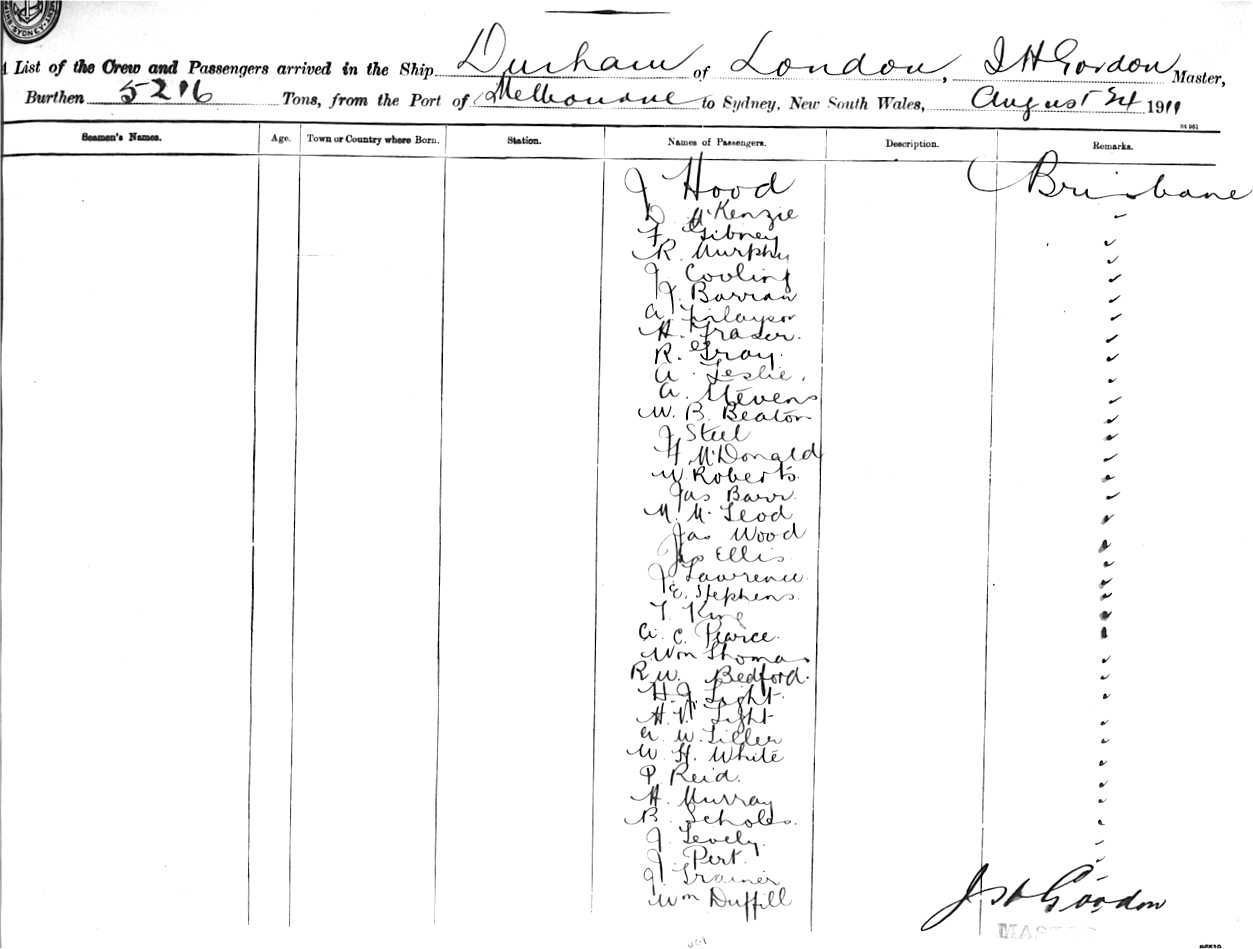 SYDNEY
List of the Crew and Passengers arrived in the Ship Durham of London, J H Gordon Master,
Burthen 5216 Tons, from the Port of Melbourne to Sydney, New South Wales, August 24 1911
Seamen's Names. Age. Town or Country where Born. Station. Names of Passengers. Description. Remarks.
J Hood Brisbane
D McKenzie
F Gibney
R. Murphy
J Cooling
J. Barrian
A Finlayson
H. Fraser.
R. Gray.
A Leslie.
A. Stevens
W. B. Beaton
J Steel
H McDonald
W. Roberts.
Jas Barr
M. McLeod
Jas Wood
Ellis
J Lawrence
E. Stephens.
T. King
A. C. Pearce.
Wm Thomas
R W. Bedford.
H. J. Light.
H. V. Light
A. W. Tiller
W. H. White
P. Reid.
H. Murray
B. Scholes.
J. Levely.
J. Pert.
J. Trainer
Wm Duffill
J H Gordon